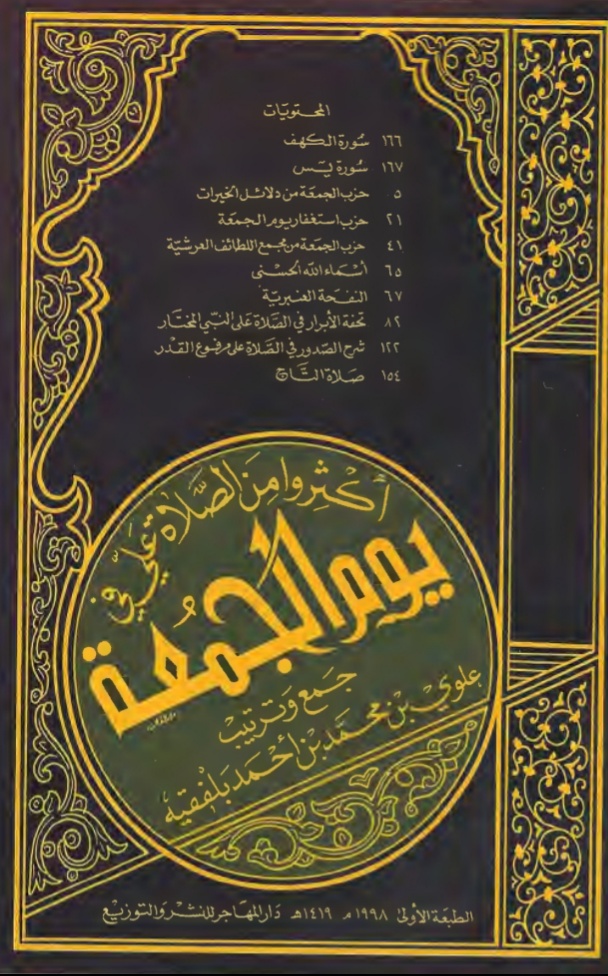 المحتويات
١٦٦ سُورة الكهف
١٦٧ سُورة يٰسٓ
٥ حزب الجمعة من دلائل الخيرات
٢١ حزب استغفار يوم الجمعة
٤١ حزب الجمعة من مجمع اللطائف العرشيّة
٦٥ أسْماء الله الحسنى
٦٧ النفحة العنبريّة
٨٩ تحفة الأبرار في الصَّلاة على النبيّ المختار
١٢٢ شرح الصّدور في الصَّلاة على مرفوع القدر
١٥٤ صَلاة التَّاج
أكْثِروا مِنَ الصَّلَاةِ عَلَيَّ في
يوم الجُمُعة
جَمع وَترتيبْ
علوي بن محمَّد بن أحمَد بلفقيه
الطبعَة الأولى ١٩٩٨ م ١٤١٩ هـ دَار المهَاجر للنشر والتوزيع